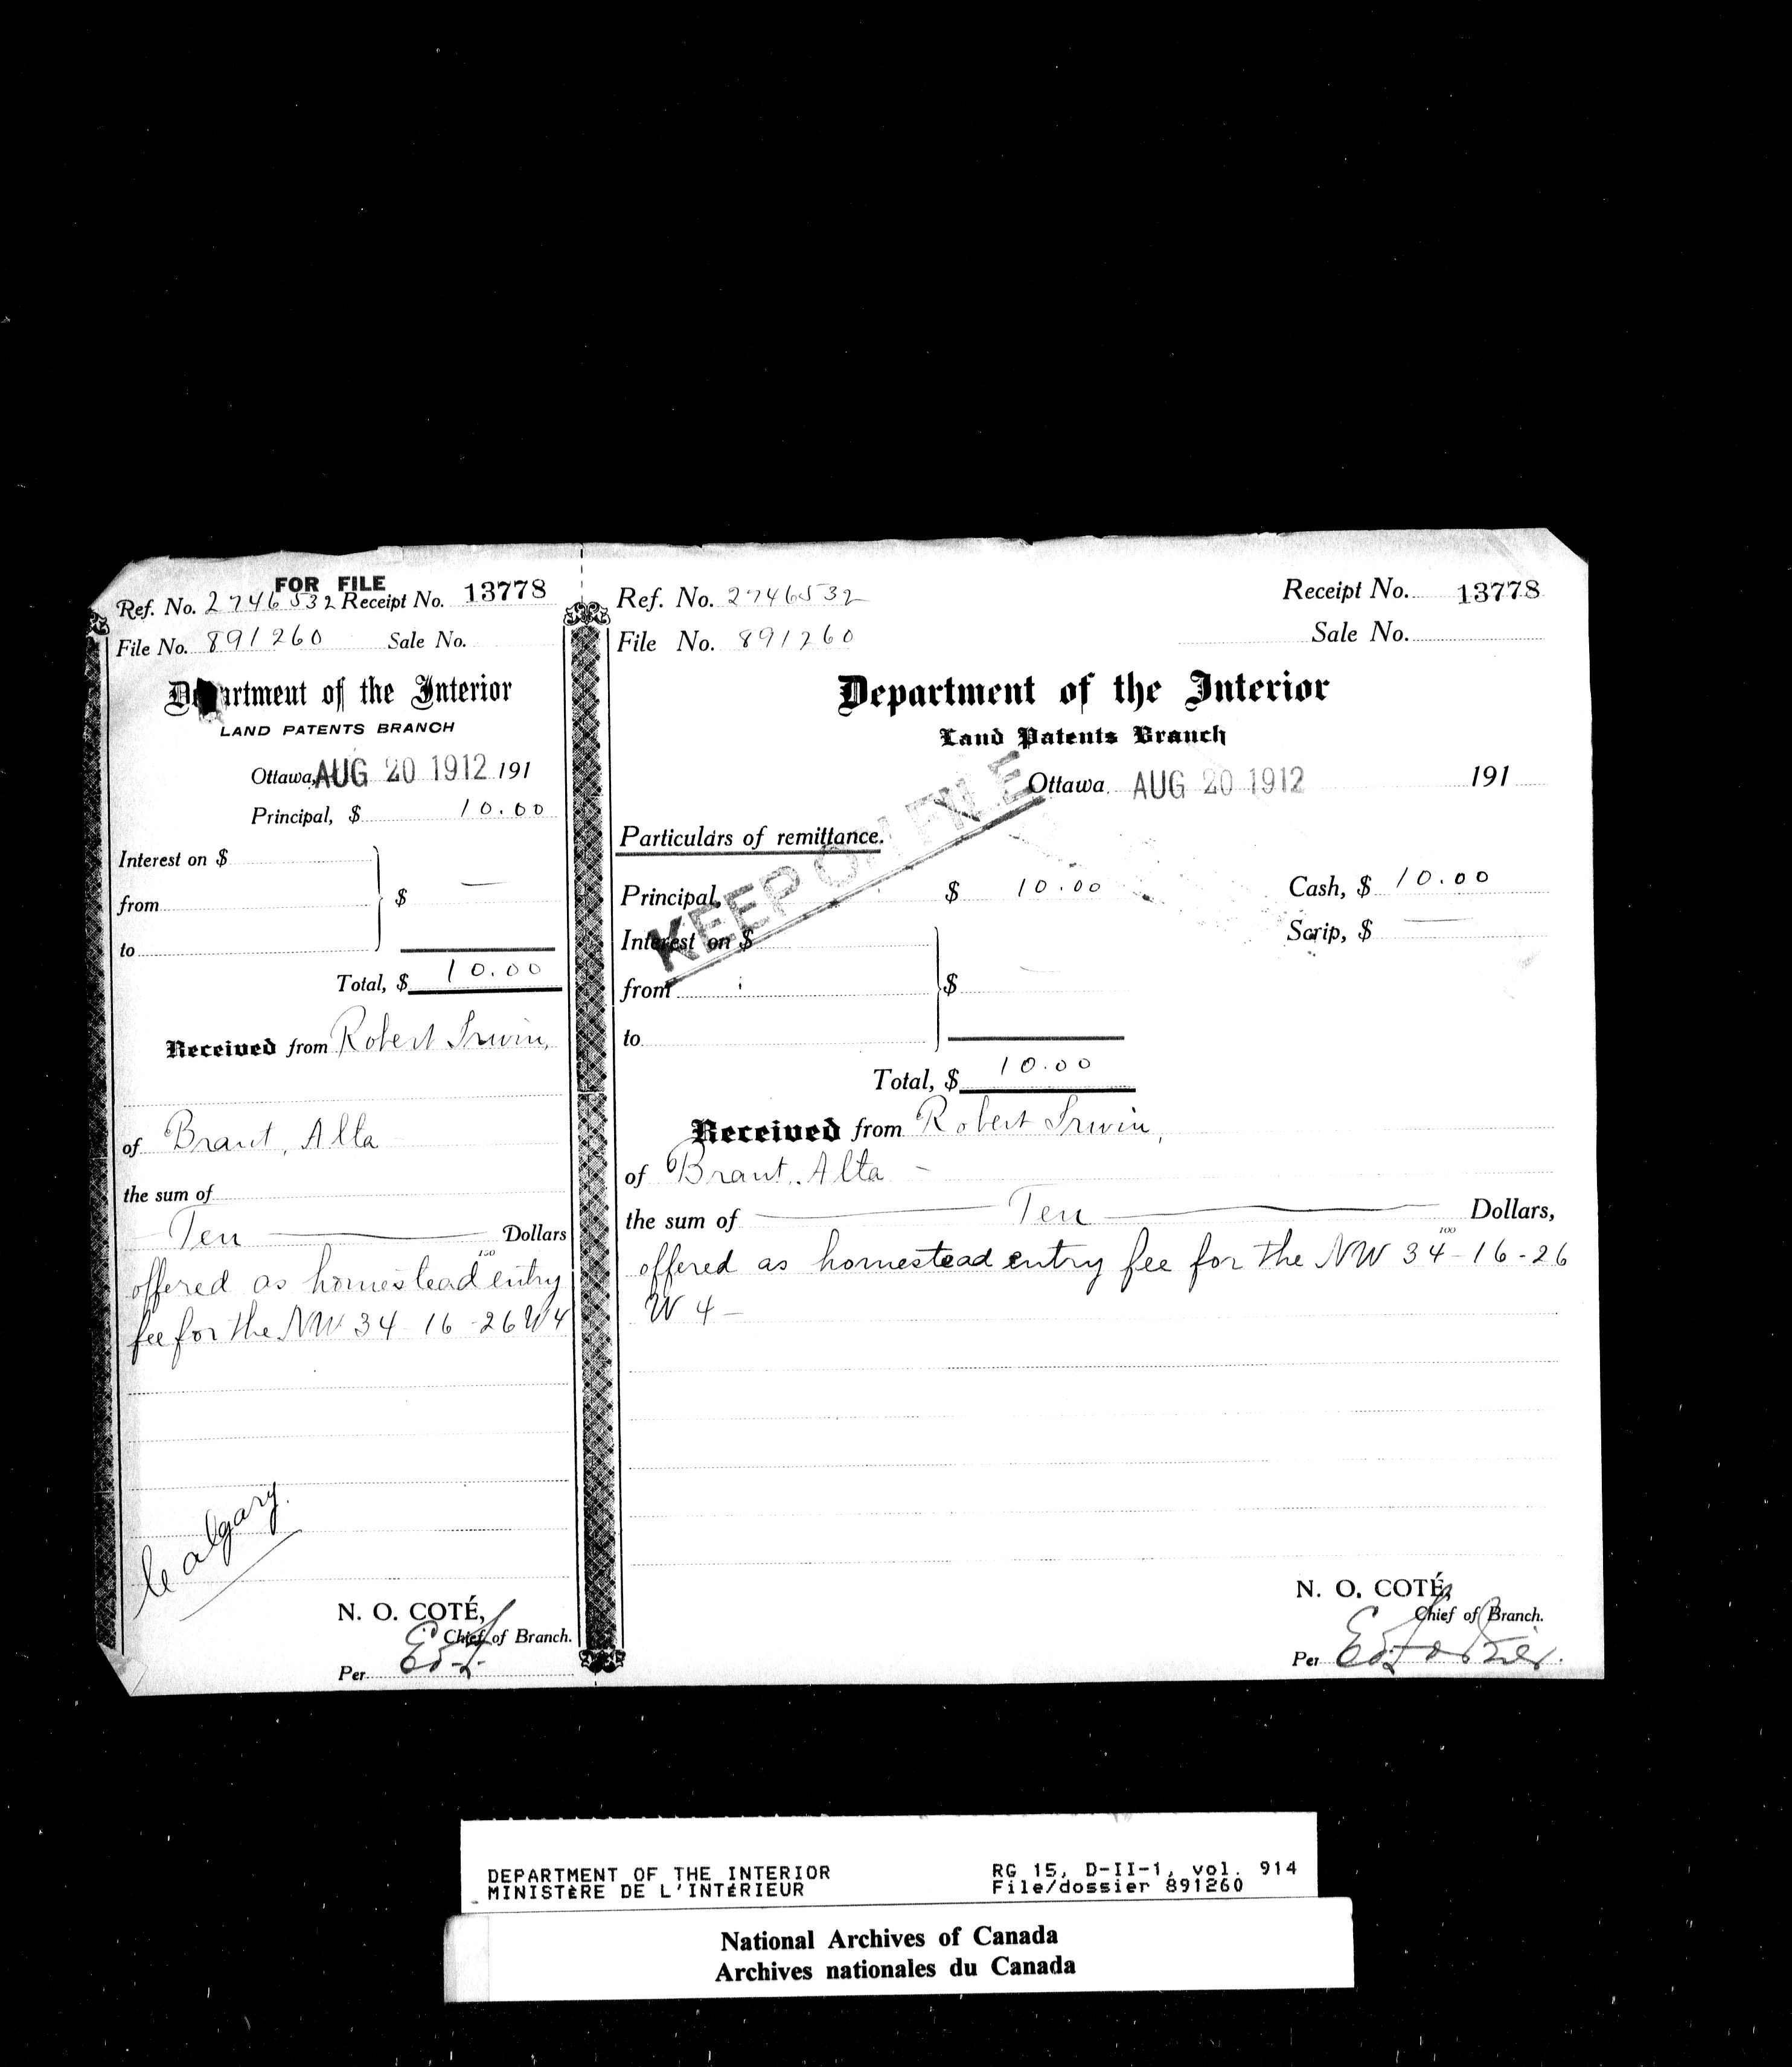 FOR FILE
Ref. No. 2746532 Receipt No. 13778
File No. 891260 Sale No.
Department of the Interior
LAND PATENTS BRANCH
Ottawa, AUG 20 1912 191
Principal, $ 10.00
Interest on $
from $ —
to
Total, $ 10.00
Received from Robert Irwin,
of Brant, Alta
the sum of
— Ten — Dollars
100
offered as homestead entry
fee for the NW 34 16 - 26 W4
Calgary.
N. O. COTÉ,
Chief of Branch.
Per
Ref. No. 2746532 Receipt No. 13778
File No. 891260 Sale No.
Department of the Interior
Land Patents Branch
Ottawa AUG 20 1912 191
KEEP ON FILE
Particulars of remittance.
Principal, $ 10.00 Cash, $ 10.00
Interest on $ Scrip, $ —
from $
to
Total, $ 10.00
Received from Robert Irwin,
of Brant, Alta —
the sum of — Ten — Dollars,
100
offered as homestead entry fee for the NW 34 - 16 - 26
W 4 —
N. O. COTÉ,
Chief of Branch.
Per
DEPARTMENT OF THE INTERIOR RG 15, D-II-1, vol. 914
MINISTÈRE DE L'INTÉRIEUR File/dossier 891260
National Archives of Canada
Archives nationales du Canada